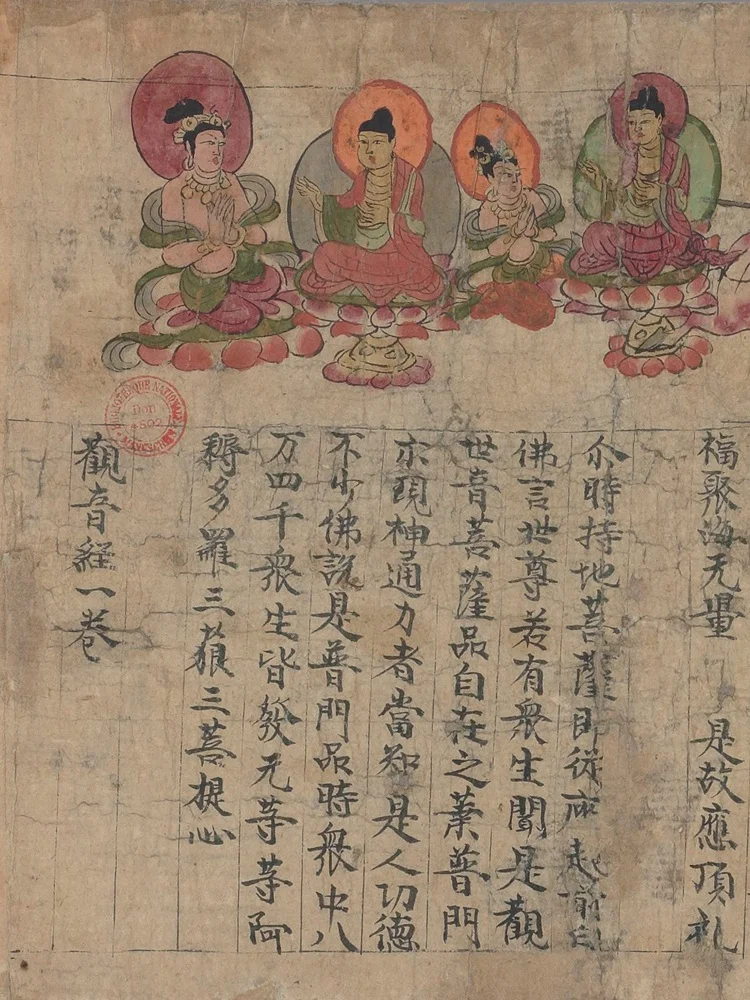 福聚海无量 是故應頂礼
尒時持地菩薩即從座起前白
佛言世尊若有衆生聞是觀
世音菩薩品自在之業普門
示現神通力者當知是人功德
不少佛說是普門品時衆中八
万四千衆生皆發无等等阿
耨多羅三藐三菩提心
觀音經一卷
BIBLIOTHEQUE NATIONALE
Don
4502